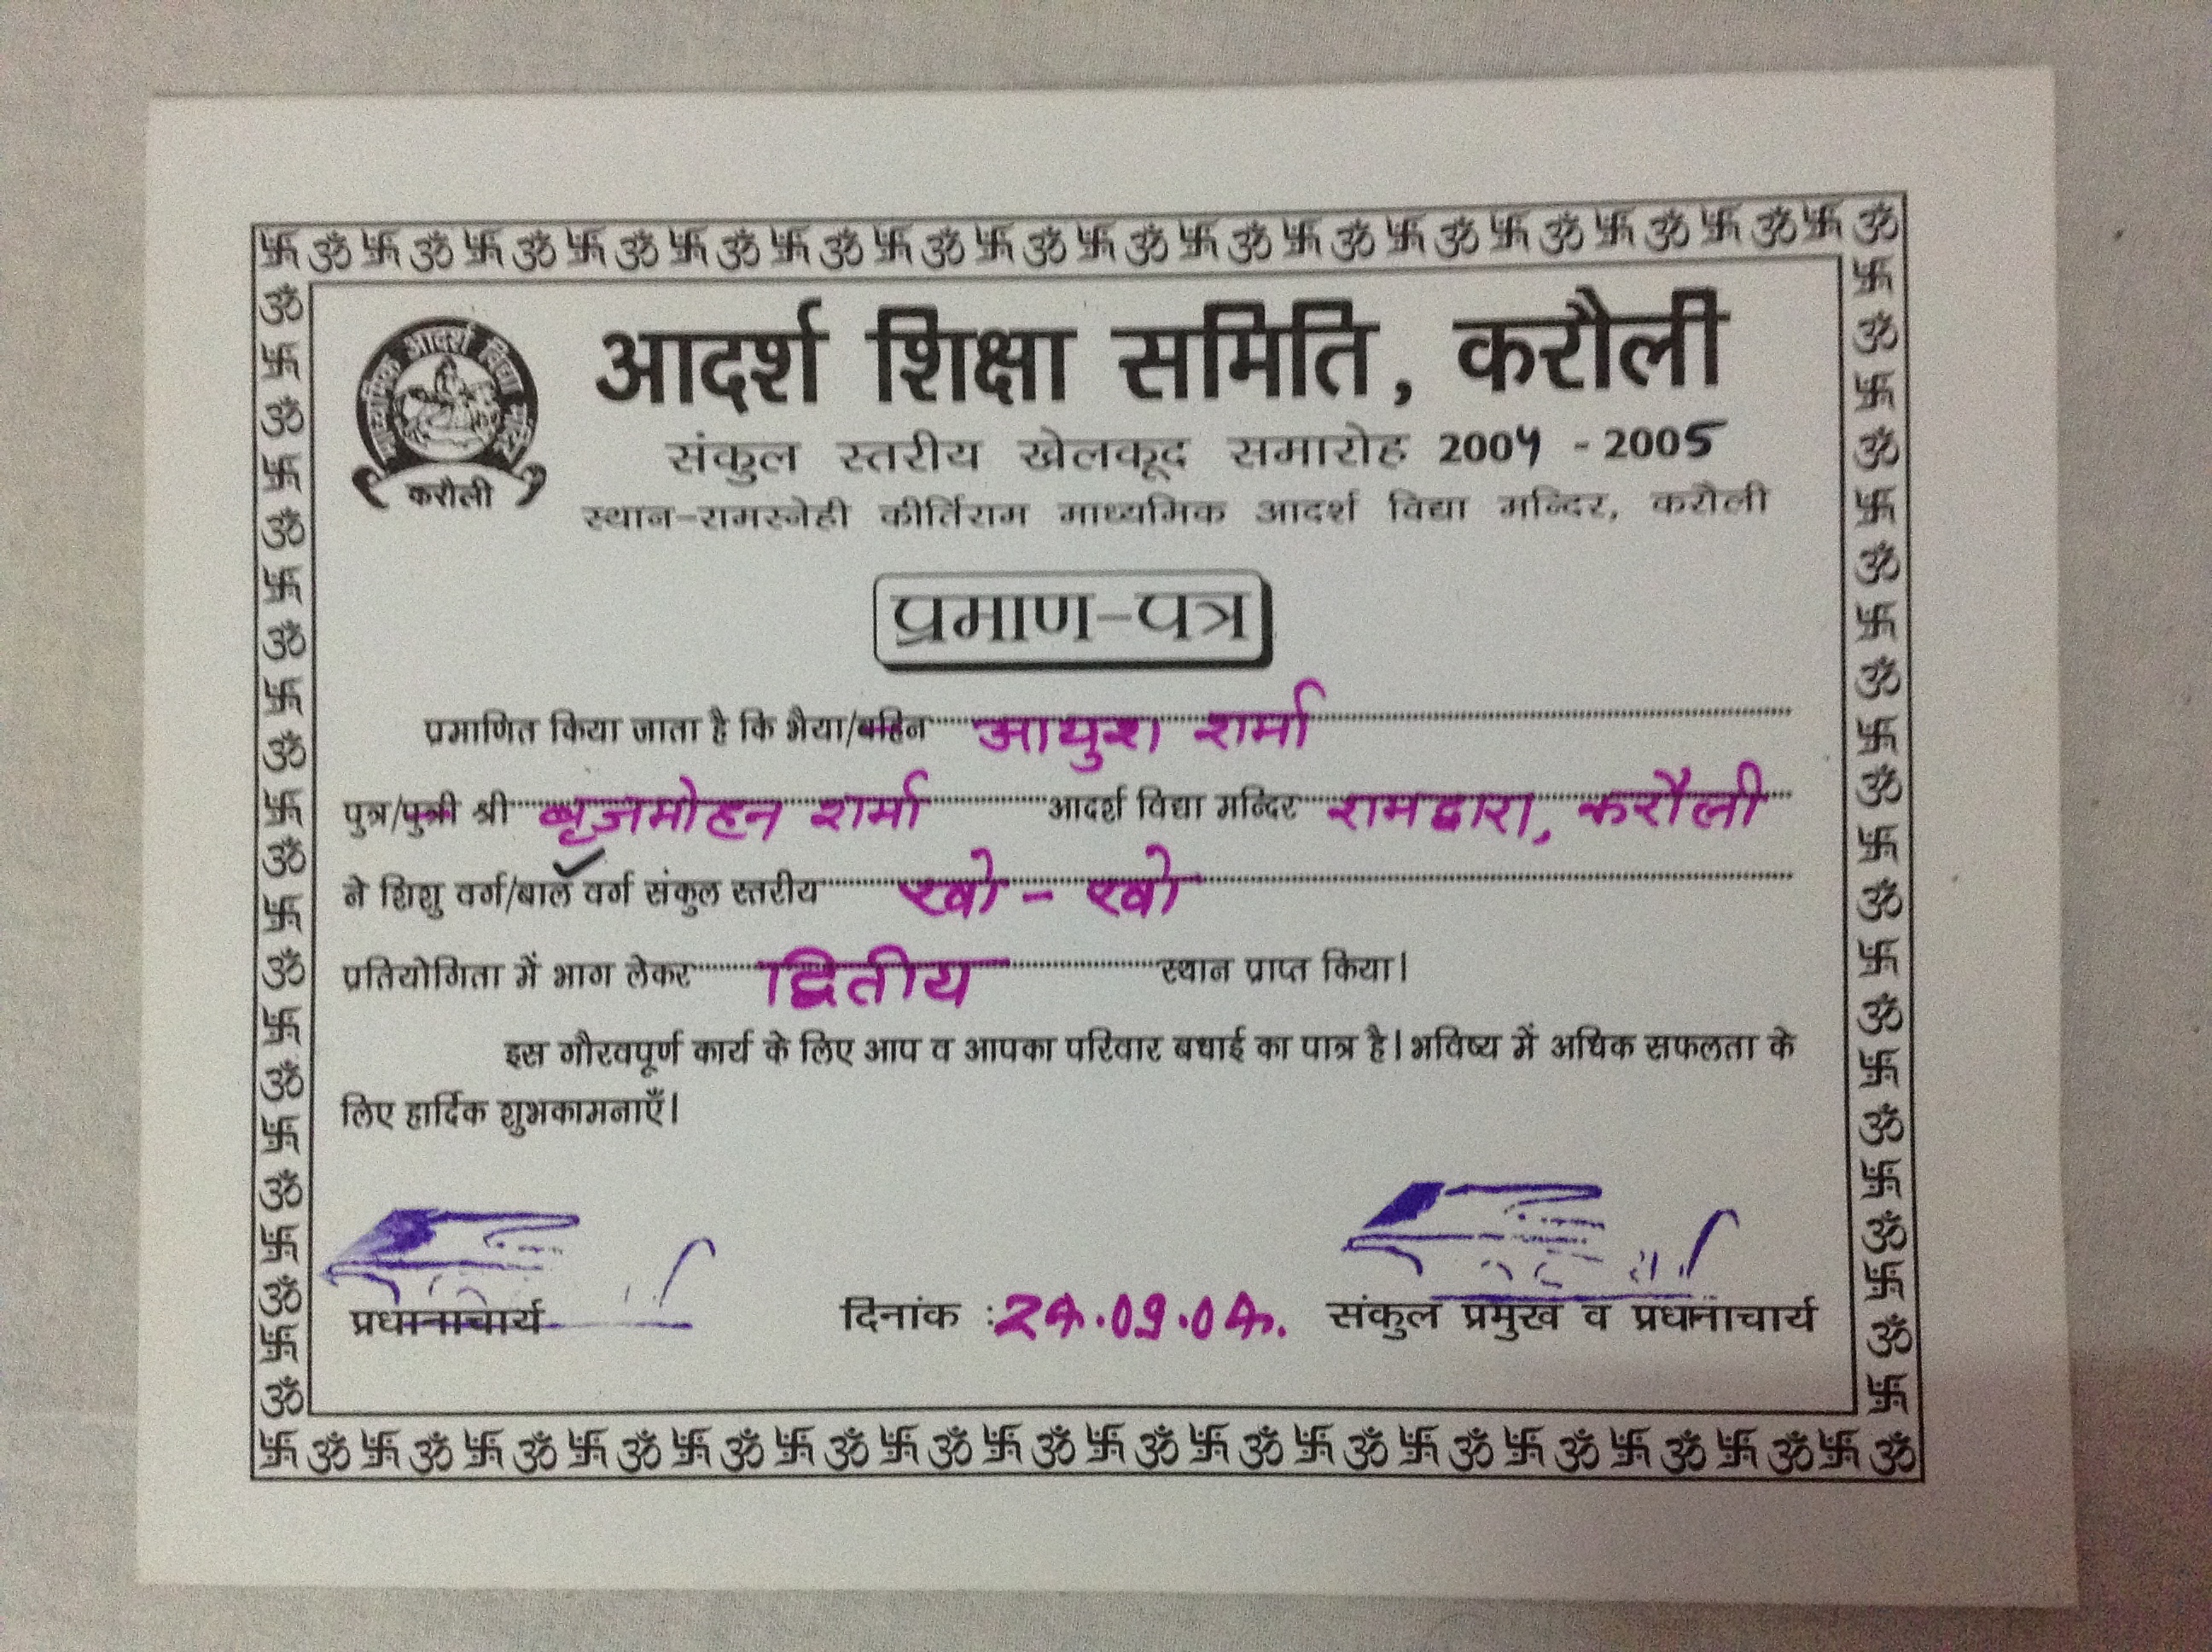 आदर्श शिक्षा समिति, करौली
संकुल स्तरीय खेलकूद समारोह 2004 - 2005
स्थान-रामस्नेही कीर्तिराम माध्यमिक आदर्श विद्या मन्दिर, करौली
माध्यमिक आदर्श विद्या मन्दिर
करौली
प्रमाण-पत्र
प्रमाणित किया जाता है कि भैया/बहिन आयुश शर्मा
पुत्र/पुत्री श्री बृजमोहन शर्मा आदर्श विद्या मन्दिर रामद्वारा, करौली
ने शिशु वर्ग/बाल वर्ग संकुल स्तरीय खो - खो
प्रतियोगिता में भाग लेकर द्वितीय स्थान प्राप्त किया।
इस गौरवपूर्ण कार्य के लिए आप व आपका परिवार बधाई का पात्र है। भविष्य में अधिक सफलता के
लिए हार्दिक शुभकामनाएँ।
प्रधानाचार्य दिनांक : 24.09.04. संकुल प्रमुख व प्रधानाचार्य